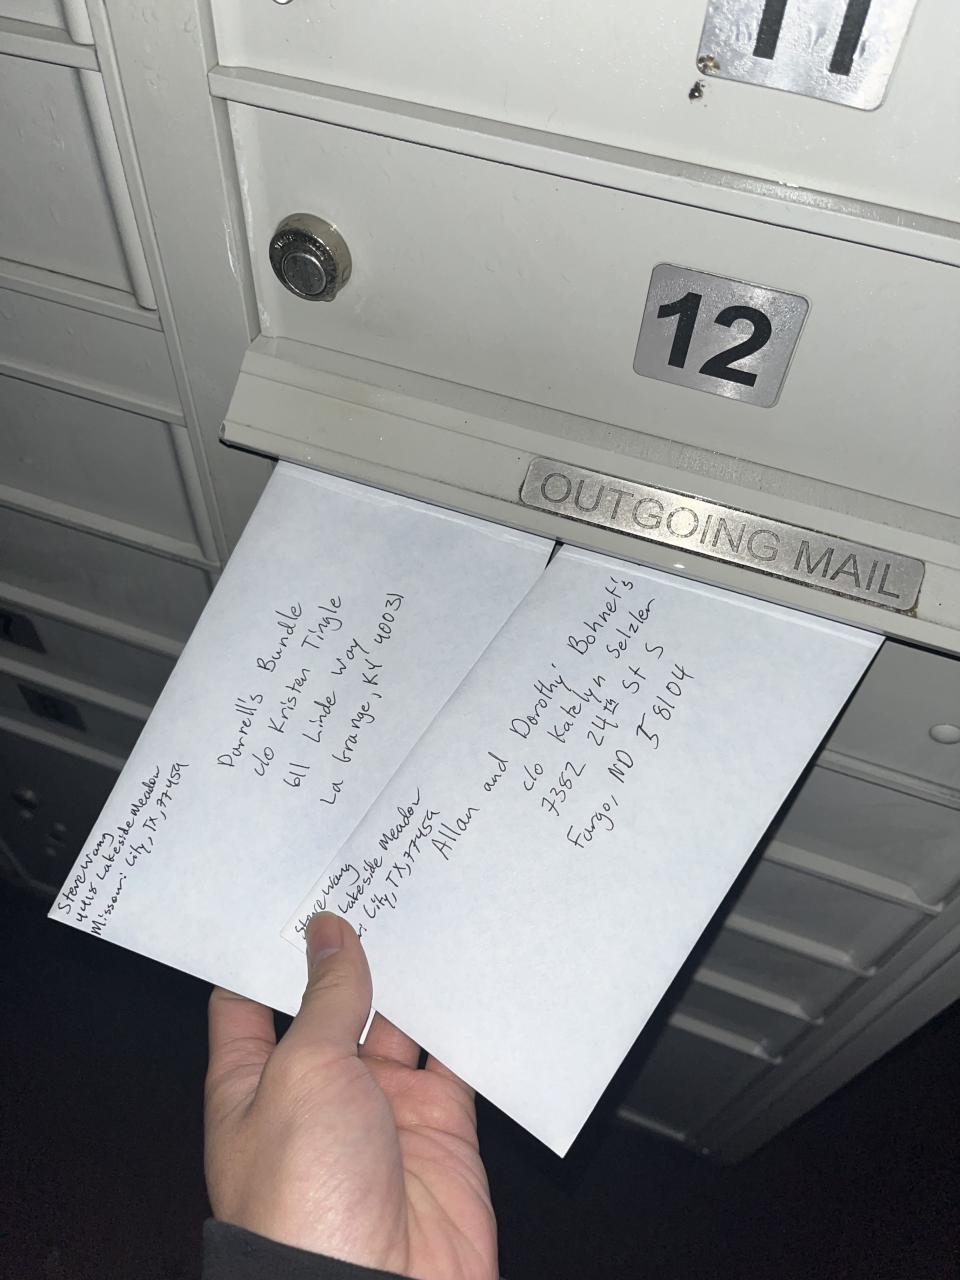 11
12
OUTGOING MAIL
Steve Wang
4418 Lakeside Meadow
Missouri City, TX, 77459
Darrell's Bundle
c/o Kristen Tingle
611 Linde Way
La Grange, KY 40031
Steve Wang
Lakeside Meadow
City, TX, 77459
Allan and Dorothy Bohnet's
c/o Katelyn Selzler
7382 24th St S
Fargo, ND 58104